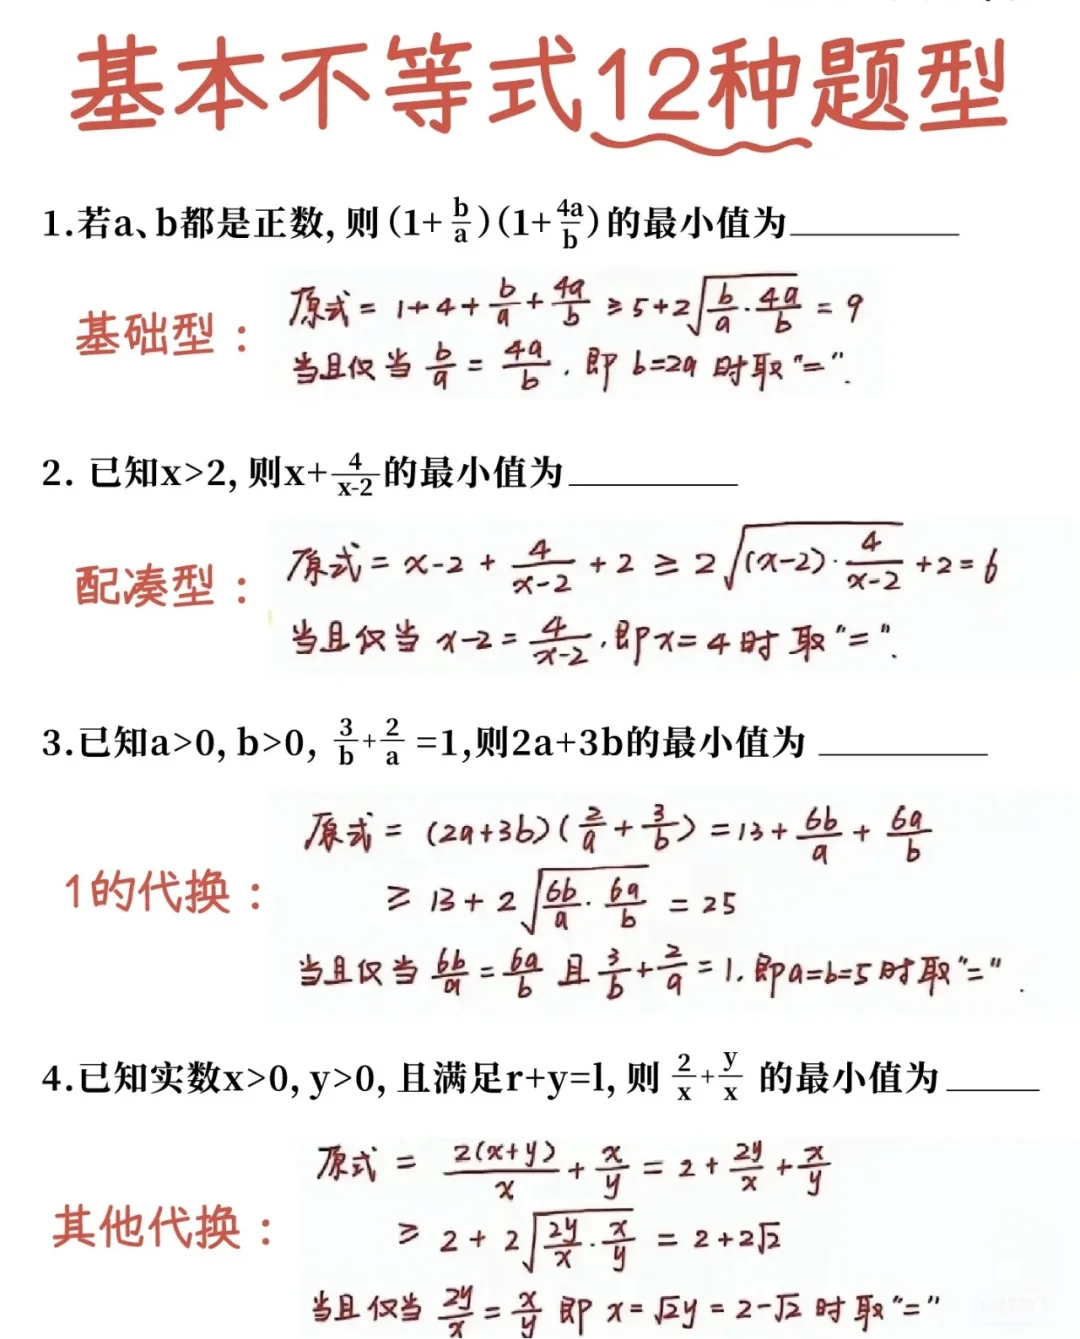 基本不等式12种题型
1.若a、b都是正数, 则(1+b/a)(1+4a/b)的最小值为________
基础型:
原式 = 1+4+b/a+4a/b ≥ 5+2√(b/a·4a/b) = 9
当且仅当 b/a = 4a/b , 即 b=2a 时取"=".
2. 已知x>2, 则x+4/(x-2)的最小值为________
配凑型:
原式 = x-2 + 4/(x-2) + 2 ≥ 2√((x-2)·4/(x-2)) +2=6
当且仅当 x-2 = 4/(x-2) , 即x=4时 取"=".
3.已知a>0, b>0, 3/b+2/a =1,则2a+3b的最小值为 ________
1的代换:
原式 = (2a+3b)(2/a+3/b) = 13+6b/a+6a/b
≥ 13+2√(6b/a·6a/b) = 25
当且仅当 6b/a = 6a/b 且 3/b+2/a = 1, 即a=b=5时取"=".
4.已知实数x>0, y>0, 且满足r+y=l, 则 2/x+y/x 的最小值为____
其他代换:
原式 = 2(x+y)/x + x/y = 2+2y/x+x/y
≥ 2+2√(2y/x·x/y) = 2+2√2
当且仅当 2y/x = x/y 即 x=√2y=2-√2 时取"="